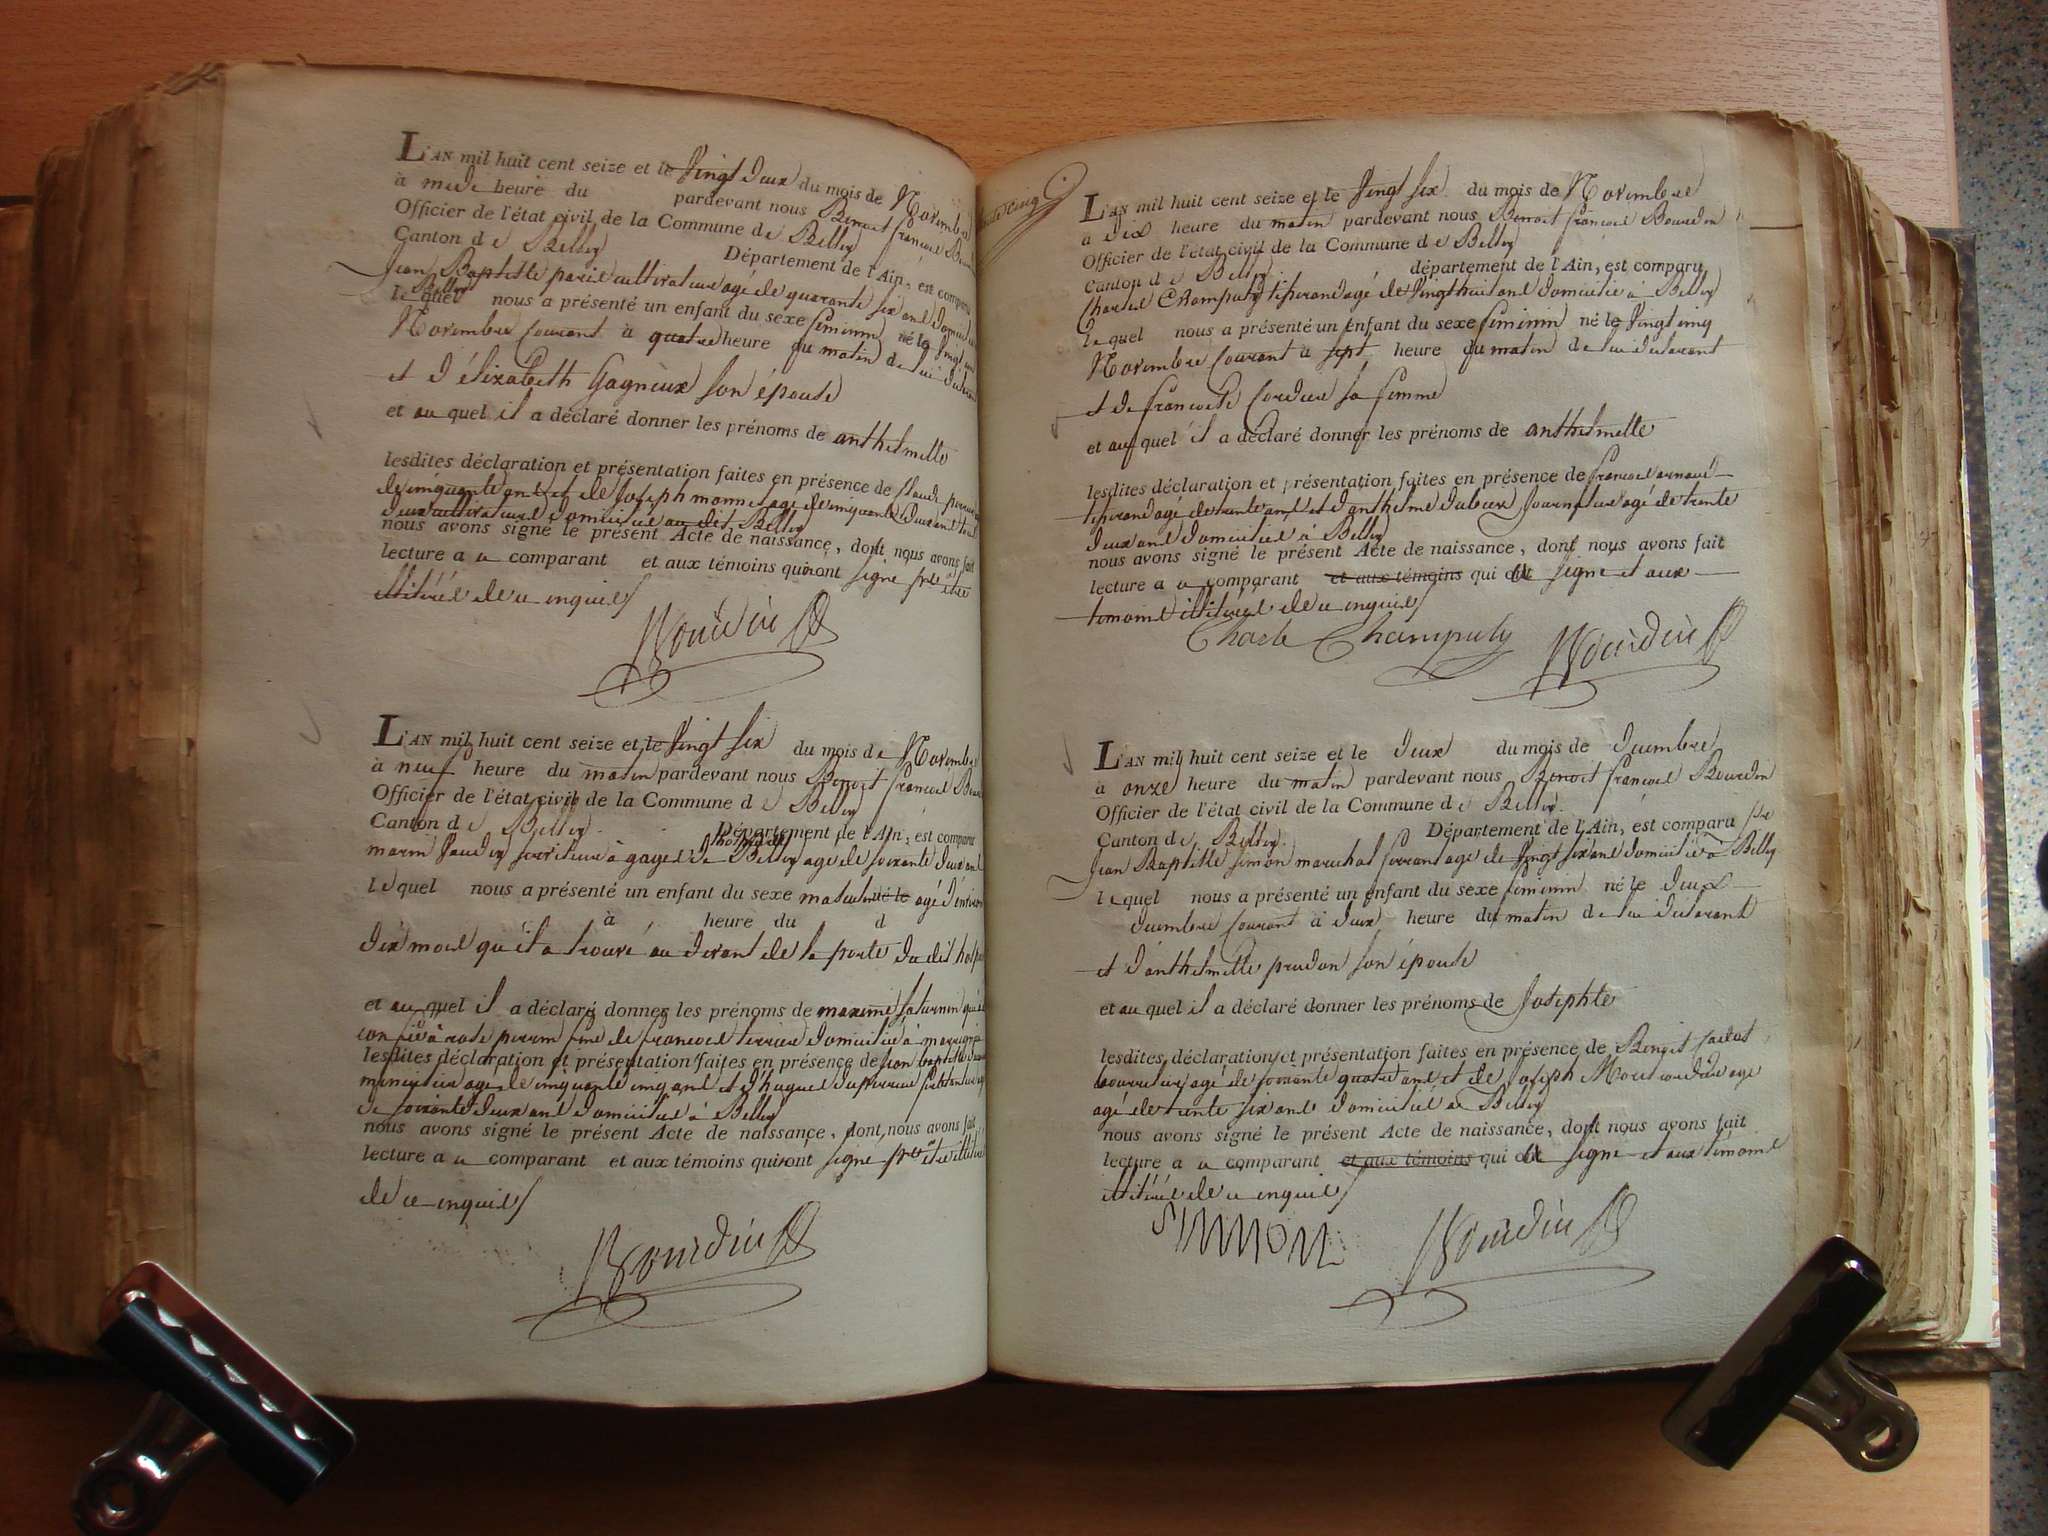 L'AN mil huit cent seize et le Vingt deux du mois de Novembre
à midi heure du pardevant nous Benoit françois
Officier de l'état civil de la Commune de Belley
Canton de Belley Département de l'Ain, est comparu
Jean Baptiste cultivateur agé de quarante six ans
Belley
lequel nous a présenté un enfant du sexe feminin né le
Novembre courant à quatre heure du matin de lui declarant
et d'élizabeth Gagnieux son épouse
et au quel il a déclaré donner les prénoms de anthelmette
lesdites déclaration et présentation faites en présence de Claude
de cinquante ans et de Joseph monnet agé de cinquante deux ans
deux cultivateurs domicilié au dit Belley
nous avons signé le présent Acte de naissance, dont nous avons fait
lecture a u comparant et aux témoins qui n ont signé
illitérés de ce enquis
Bourdin
L'AN mil huit cent seize et le Vingt six du mois de Novembre
à neuf heure du matin pardevant nous Benoit françois
Officier de l'état civil de la Commune de Belley
Canton de Belley Département de l'Ain, est comparu
marin serviteur à gages de Belley agé de soixante deux ans
lequel nous a présenté un enfant du sexe masculin né le agé d'environ
à heure du d
dix mois qu'il a trouvé au devant de la porte du dit
et au quel il a déclaré donner les prénoms de maxime saturnin
confié à rose perrin fme de françois domicilié à
lesdites déclaration et présentation faites en présence de jean baptiste
menuisier agé de cinquante cinq ans et d'hugues
de soixante deux ans domicilié à Belley
nous avons signé le présent Acte de naissance, dont nous avons fait
lecture a u comparant et aux témoins qui n ont signé
de ce enquis
Bourdin
L'AN mil huit cent seize et le Vingt six du mois de Novembre
a dix heure du matin pardevant nous Benoit françois Bourdin
Officier de l'état civil de la Commune de Belley
Canton de Belley département de l'Ain, est comparu
Charles Champuty agé de Vingt huit ans domicilié à Belley
lequel nous a présenté un enfant du sexe feminin né le Vingt cinq
Novembre courant à sept heure du matin de lui declarant
et de françoise Cordier sa femme
et au quel il a déclaré donner les prénoms de anthelmette
lesdites déclaration et présentation faites en présence de françois arnaud
agé de trente ans et d'anthelme journalier agé de trente
deux ans domicilié à Belley
nous avons signé le présent Acte de naissance, dont nous avons fait
lecture a u comparant et aux témoins qui a signé et aux
temoins illitérés de ce enquis
Charle Champuty Bourdin
L'AN mil huit cent seize et le deux du mois de decembre
à onze heure du matin pardevant nous Benoit françois Bourdin
Officier de l'état civil de la Commune de Belley
Canton de Belley Département de l'Ain, est comparu
Jean Baptiste simon marechal ferrant agé de Vingt six ans domicilié à Belley
lequel nous a présenté un enfant du sexe feminin né le deux
decembre courant à deux heure du matin de lui declarant
et d'anthelmette prudon son épouse
et au quel il a déclaré donner les prénoms de Josephte
lesdites déclaration et présentation faites en présence de Benoit
agé de soixante quatre ans et de Joseph
agé de trente six ans domicilié a Belley
nous avons signé le présent Acte de naissance, dont nous avons fait
lecture a u comparant et aux témoins qui a signé et aux témoins
illitérés de ce enquis
SIMMON Bourdin